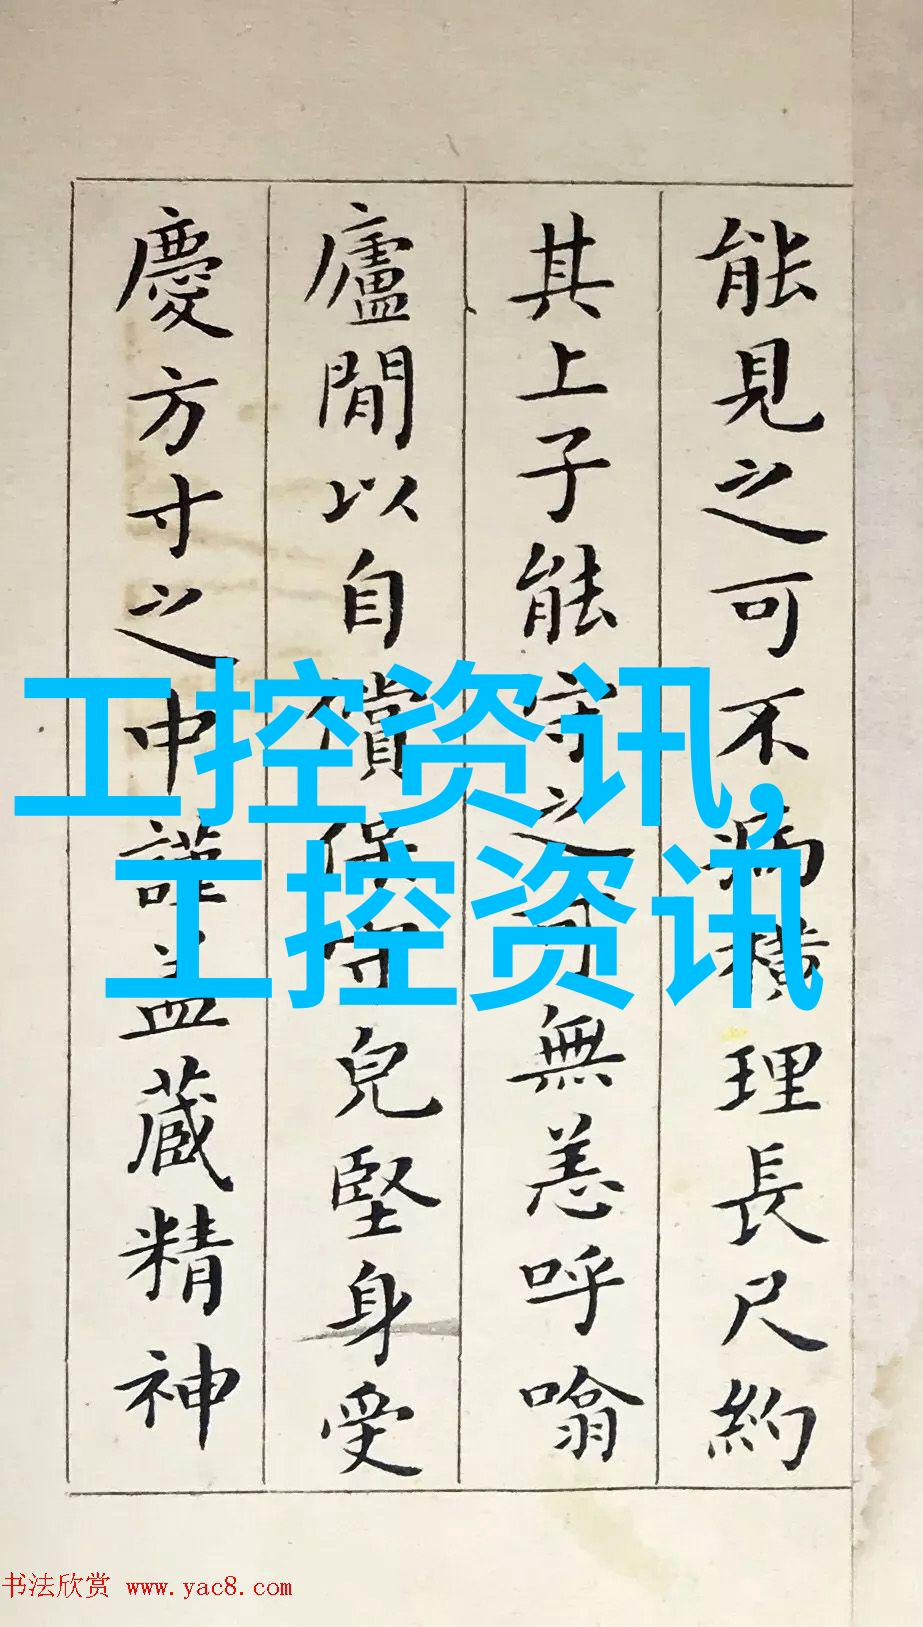 能見之可不為橫理長尺約
其上子能守之可無恙呼噏
廬閒以自償保守兒堅身受
慶方寸之中謹盖藏精神
工控资讯,
工控资讯
书法欣赏 www.yac8.com